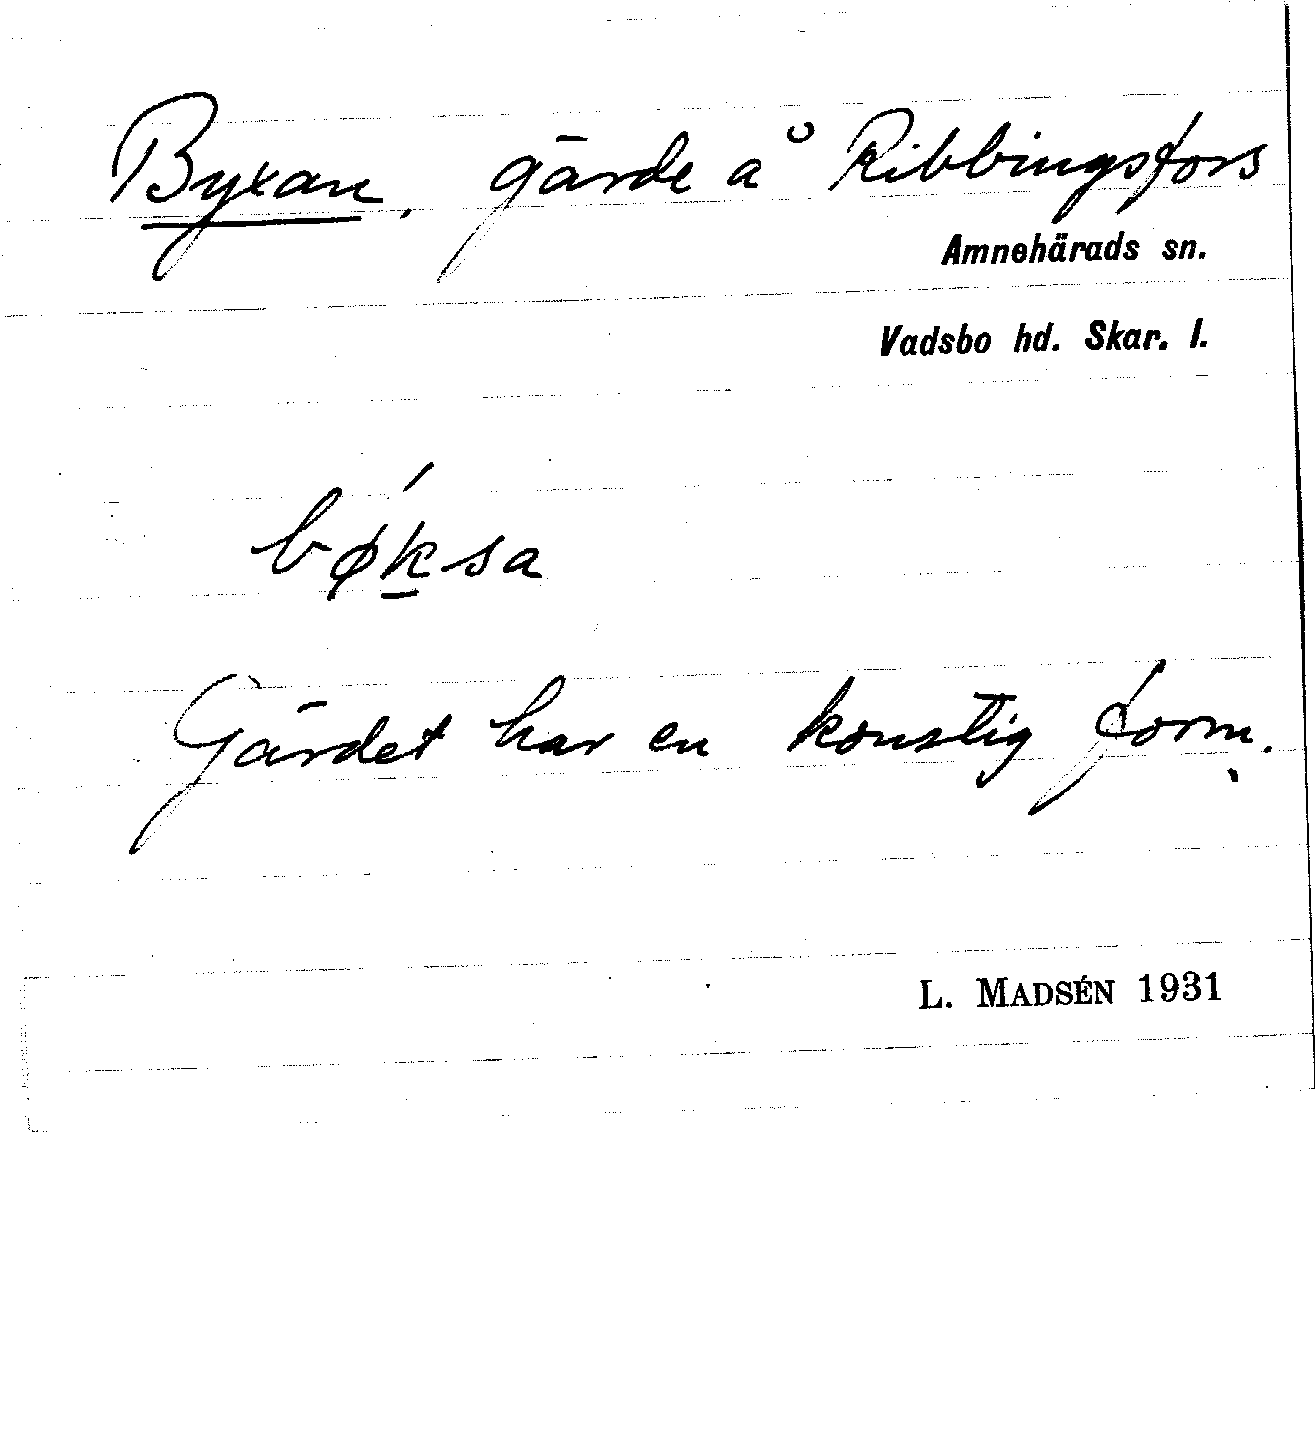 Byxan, gärde å Ribbingsfors
Amnehärads sn.
Vadsbo hd. Skar. l.
bǿk̠sa
Gärdet har en konstig form.
L. MADSÉN 1931